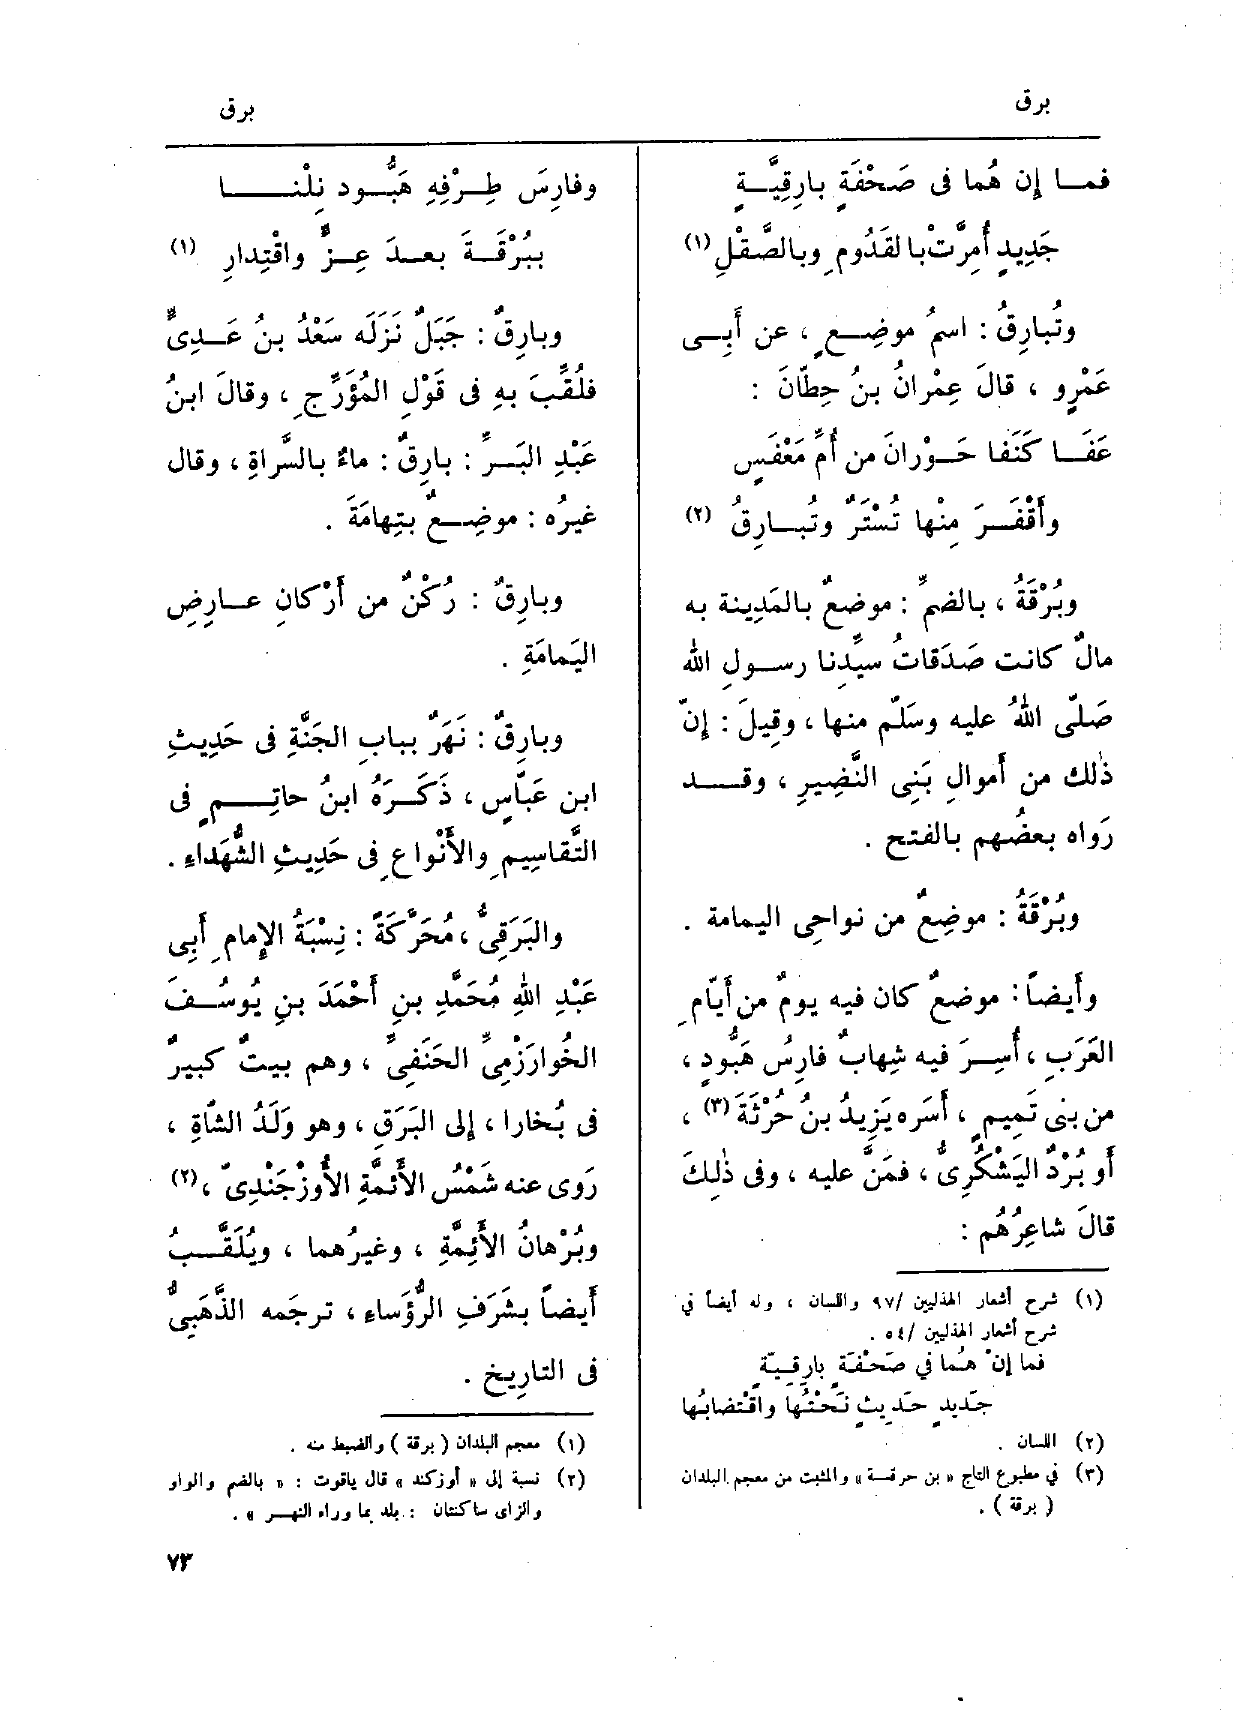 برق
برق
فمـا إن هُما فى صَحْفَةٍ بارِقِيَّـةٍ
جَدِيدٍ أُمِرَّتْ بالقَدُومِ وبالصَّقْلِ (١)
وتُبارِقُ : اسمُ موضِـعٍ ، عن أَبِـى
عَمْرٍو ، قالَ عِمْرانُ بنُ حِطّانَ :
عَفَـا كَنَفا حَـوْرانَ من أُمِّ مَعْفَسٍ
وأَقْفَـرَ مِنْها تُسْتَرٌ وتُبـارِقُ (٢)
وبُرْقَةُ ، بالضمِّ : موضعٌ بالمَدِينة به
مالٌ كانت صَدَقاتُ سيِّدِنا رسـولِ الله
صَلّى اللهُ عليه وسَلّم منها ، وقِيلَ : إِنّ
ذٰلك من أَموالِ بَنِى النَّضِيرِ ، وقـــد
رَواه بعضُهم بالفتح .
وبُرْقَةُ : موضِعٌ من نواحِى اليمامة .
وأَيضاً : موضعٌ كان فيه يومٌ من أَيّامِ
العَرَبِ ، أُسِـرَ فيه شِهابٌ فارِسُ هَبُّودٍ ،
من بنى تَمِيمٍ ، أَسَره يَزِيدُ بنُ حُرْثَةَ (٣) ،
أَو بُرْدٌ اليَشْكُرِىُّ ، فمَنَّ عليه ، وفى ذٰلِكَ
قالَ شاعِرُهُم :
(١) شرح أشعار الهذليين /٩٧ واللسان ، وله أيضاً في
شرح أشعار الهذليين /٥٤ .
فما إنْ هُما في صَحْفَةٍ بارِقِيّةٍ
جَديدٍ حَديثٍ نَحْتُها واقْتضابُها
(٢) اللسان .
(٣) في مطبوع التاج « بن حرقـة » والمثبت من معجم البلدان
( برقة ) .
وفارِسَ طِـرْفِهِ هَبُّـود نِلْنــــا
ببُرْقَـةَ بعـدَ عِـزٍّ واقْتِدارِ (١)
وبارِقٌ : جَبَلٌ نَزَلَه سَعْدُ بنُ عَـدِىٍّ
فلُقِّبَ به فى قَوْلِ المُؤَرِّجِ ، وقالَ ابنُ
عَبْدِ البَـرِّ : بارِقٌ : ماءٌ بالسَّراةِ ، وقال
غيرُه : موضِـعٌ بتِهامَةَ .
وبارِقٌ : رُكْنٌ من أَرْكانِ عـارِضِ
اليَمامَةِ .
وبارِقٌ : نَهَرٌ ببابِ الجَنَّةِ فى حَدِيثِ
ابن عَبّاسٍ ، ذَكَـرَهُ ابنُ حاتِـــمٍ فى
التَّقاسِيمِ والأَنْواعِ فى حَدِيثِ الشُّهَداءِ .
والبَرَقِىُّ ، مُحَرَّكَةً : نِسْبَةُ الإِمامِ أَبِى
عَبْدِ اللهِ مُحَمَّدِ بنِ أَحْمَدَ بنِ يُوسُـفَ
الخُوارَزْمِىِّ الحَنَفِىِّ ، وهم بيتٌ كبيرٌ
فى بُخارا ، إلى البَرَقِ ، وهو وَلَدُ الشّاةِ ،
رَوى عنه شَمْسُ الأَئمَّةِ الأُوزْجَنْدِىّ (٢) ،
وبُرْهانُ الأَئِمَّةِ ، وغيرُهما ، ويُلَقَّـبُ
أَيضاً بشَرَفِ الرُّؤَساءِ ، ترجَمه الذَّهَبِىُّ
فى التارِيخ .
(١) معجم البلدان ( برقة ) والضبط منه .
(٢) نسبة إلى « أوزكند » قال ياقوت : « بالضم والواو
والزاى ساكنتان : بلد بما وراء النهـر » .
٧٣